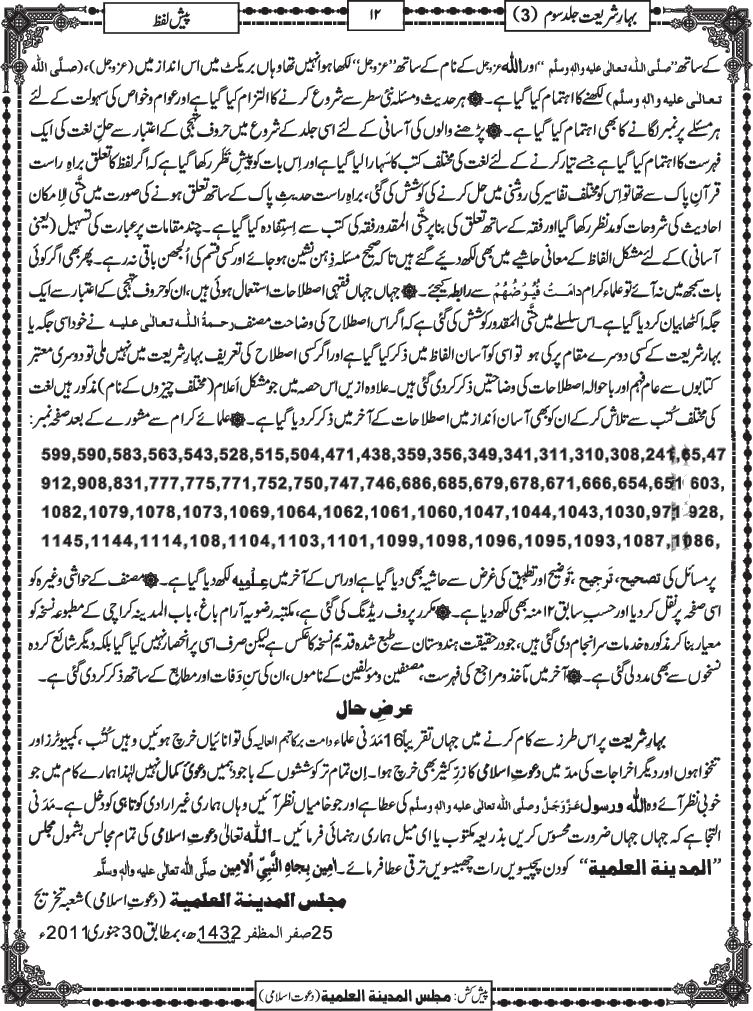 بہارِ شریعت جلد سوم (3)
۱۲
پیش لفظ
کے ساتھ ”صلَّی اللہ تعالٰی علیہ والہٖ وسلَّم“ اور اللہ عزوجل کے نام کے ساتھ ”عزوجل“ لکھا ہوا نہیں تھا وہاں بریکٹ میں اس انداز میں (عزوجل)، (صلَّی اللہ
تعالٰی علیہ والہٖ وسلَّم) لکھنے کا اہتمام کیا گیا ہے۔ ۞ ہر حدیث و مسئلہ نئی سطر سے شروع کرنے کا التزام کیا گیا ہے اور عوام و خواص کی سہولت کے لئے
ہر مسئلے پر نمبر لگانے کا بھی اہتمام کیا گیا ہے۔ ۞ پڑھنے والوں کی آسانی کے لئے اسی جلد کے شروع میں حروفِ تہجی کے اعتبار سے حلِ لغت کی ایک
فہرست کا اہتمام کیا گیا ہے جسے تیار کرنے کے لئے لغت کی مختلف کتب کا سہارا لیا گیا ہے اور اِس بات کو پیشِ نظر رکھا گیا ہے کہ اگر لفظ کا تعلق براہِ راست
قرآنِ پاک سے تھا تو اِس کو مختلف تفاسیر کی روشنی میں حل کرنے کی کوشش کی گئی، براہِ راست حدیثِ پاک کے ساتھ تعلق ہونے کی صورت میں حتَّی الاِمکان
احادیث کی شروحات کو مدنظر رکھا گیا اور فقہ کے ساتھ تعلق کی بنا پر حتَّی المقدور فقہ کی کتب سے اِستِفادہ کیا گیا ہے۔ چند مقامات پر عبارت کی تسہیل (یعنی
آسانی) کے لئے مشکل الفاظ کے معانی حاشیے میں بھی لکھ دیے گئے ہیں تاکہ صحیح مسئلہ ذہن نشین ہو جائے اور کسی قسم کی اُلجھن باقی نہ رہے۔ پھر بھی اگر کوئی
بات سمجھ میں نہ آئے تو علماءِ کرام دامت فُیُوضُھُمْ سے رابطہ کیجئے۔ ۞ جہاں جہاں فقہی اصطلاحات استعمال ہوئی ہیں، ان کو حروفِ تہجی کے اعتبار سے ایک
جگہ اکٹھا بیان کر دیا گیا ہے۔ اس سلسلے میں حتَّی المقدور کوشش کی گئی ہے کہ اگر اس اصطلاح کی وضاحت مصنف رحمۃُ اللہ تعالٰی علیہ نے خود اسی جگہ یا
بہارِ شریعت کے کسی دوسرے مقام پر کی ہو تو اسی کو آسان الفاظ میں ذکر کیا گیا ہے اور اگر کسی اصطلاح کی تعریف بہارِ شریعت میں نہیں ملی تو دوسری معتبر
کتابوں سے عام فہم اور باحوالہ اصطلاحات کی وضاحتیں ذکر کر دی گئی ہیں۔ علاوہ ازیں اس حصہ میں جو مشکل اَعلام (مختلف چیزوں کے نام) مذکور ہیں لغت
کی مختلف کُتب سے تلاش کر کے ان کو بھی آسان اَنداز میں اصطلاحات کے آخر میں ذکر کر دیا گیا ہے۔ ۞ علمائے کرام سے مشورے کے بعد صفحہ نمبر:
599,590,583,563,543,528,515,504,471,438,359,356,349,341,311,310,308,241,65,47
912,908,831,777,775,771,752,750,747,746,686,685,679,678,671,666,654,651 603,
1082,1079,1078,1073,1069,1064,1062,1061,1060,1047,1044,1043,1030,971 928,
1145,1144,1114,108,1104,1103,1101,1099,1098,1096,1095,1093,1087,1086,
پر مسائل کی تصحیح، ترجیح، توضیح اور تطبیق کی غرض سے حاشیہ بھی دیا گیا ہے اور اس کے آخر میں عِلْمِیہ لکھ دیا گیا ہے۔ ۞ مصنف کے حواشی وغیرہ کو
اسی صفحہ پر نقل کر دیا اور حسبِ سابق ۱۲ منہ بھی لکھ دیا ہے۔ ۞ مکرر پروف ریڈنگ کی گئی ہے، مکتبہ رضویہ آرام باغ، باب المدینہ کراچی کے مطبوعہ نسخہ کو
معیار بنا کر مذکورہ خدمات سرانجام دی گئی ہیں، جو در حقیقت ہندوستان سے طبع شدہ قدیم نسخہ کا عکس ہے لیکن صرف اسی پر انحصار نہیں کیا گیا بلکہ دیگر شائع کردہ
نسخوں سے بھی مدد لی گئی ہے۔ ۞ آخر میں مآخذ و مراجع کی فہرست، مصنفین و مؤلفین کے ناموں، ان کی سنِ وَفات اور مطابع کے ساتھ ذکر کر دی گئی ہے۔
عرضِ حال
بہارِ شریعت پر اس طرز سے کام کرنے میں جہاں تقریباً 16 مَدَنی علماء دامت برکاتہم العالیہ کی توانائیاں خرچ ہوئیں وہیں کُتُب، کمپیوٹرز اور
تنخواہوں اور دیگر اخراجات کی مدّ میں دعوتِ اسلامی کا زرِ کثیر بھی خرچ ہوا۔ اِن تمام تر کوششوں کے باوجود ہمیں دعویٔ کمال نہیں لہٰذا ہمارے کام میں جو
خوبی نظر آئے وہ اللہ و رسول عَزَّوَجَلَّ وصلَّی اللہ تعالٰی علیہ والہٖ وسلَّم کی عطا ہے اور جو خامیاں نظر آئیں وہاں ہماری غیر ارادی کوتاہی کو دخل ہے۔ مَدَنی
التجا ہے کہ جہاں جہاں ضرورت محسوس کریں بذریعہ مکتوب یا ای میل ہماری رہنمائی فرمائیں۔ اللہ تعالٰی دعوتِ اسلامی کی تمام مجالس بشمول مجلس
”المدینۃ العلمیۃ“ کو دن پچیسویں رات چھبیسویں ترقی عطا فرمائے۔ امین بجاہِ النَّبِیِّ الامین صلَّی اللہ تعالٰی علیہ والہٖ وسلَّم
مجلس المدینۃ العلمیۃ (دعوتِ اسلامی) شعبہ تخریج
25 صفر المظفر 1432ھ، بمطابق 30 جنوری 2011ء
پیش کش: مجلس المدینۃ العلمیۃ (دعوتِ اسلامی)